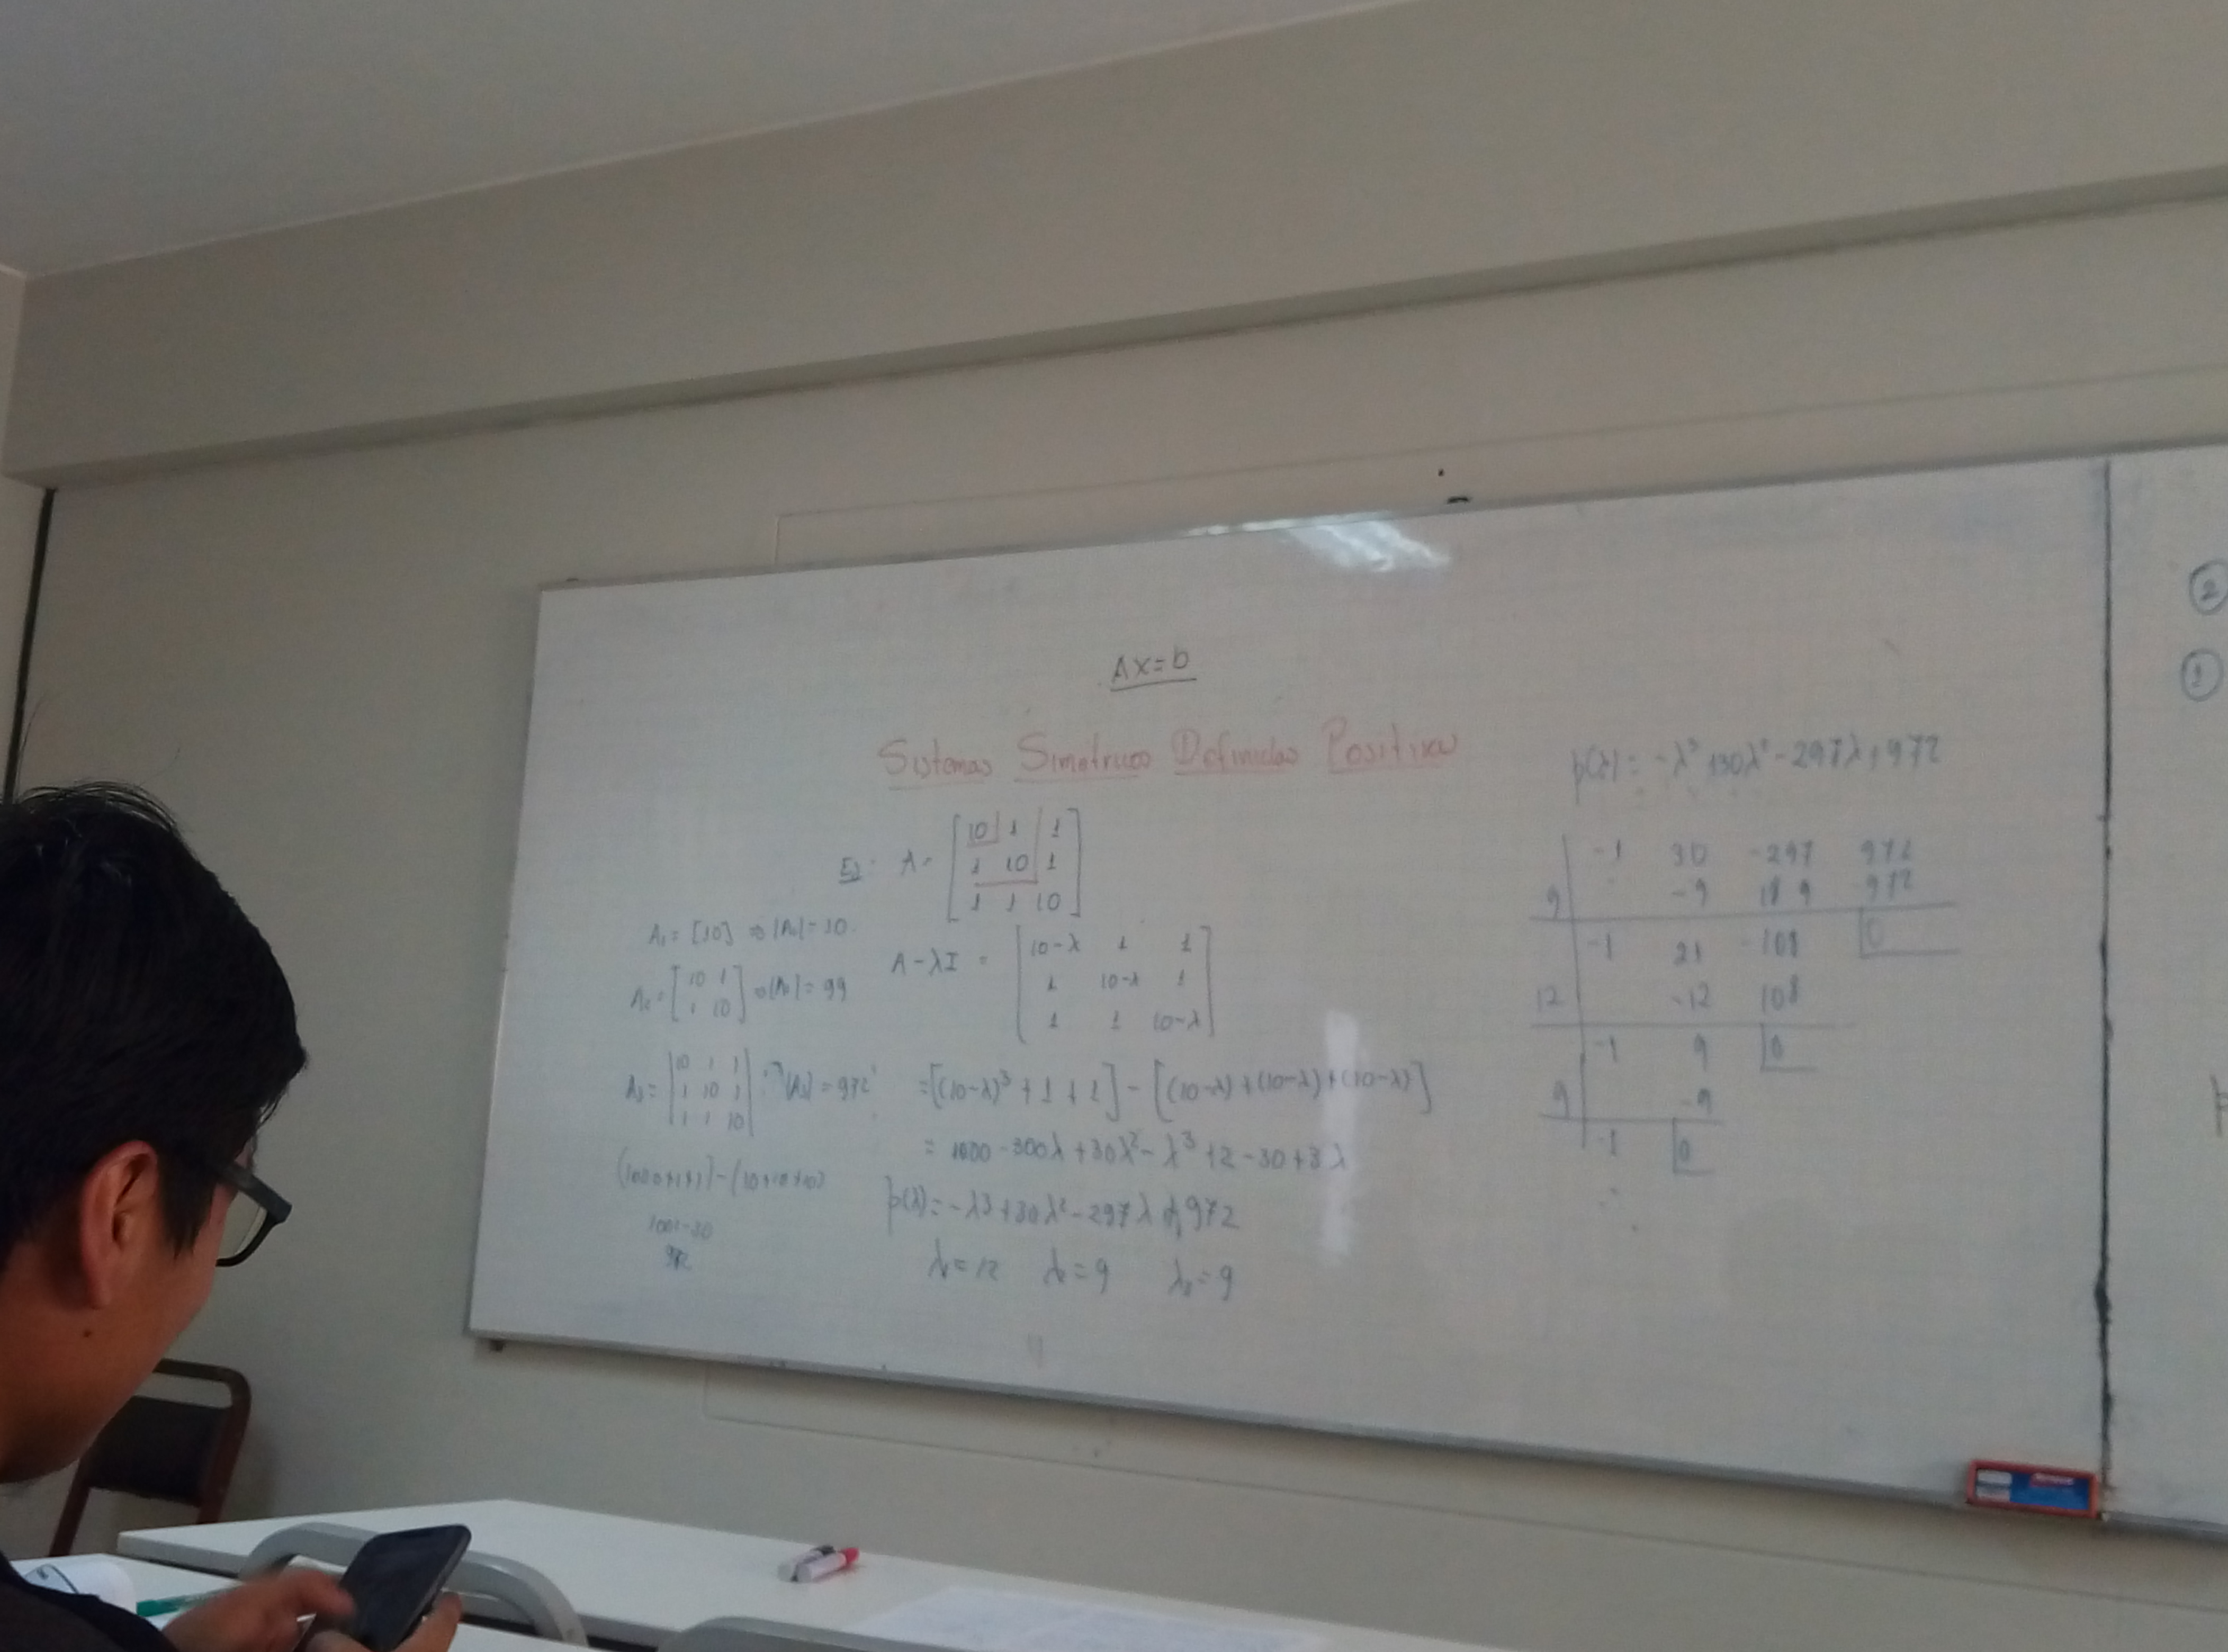 Ax=b
Sistemas Simetricos Definidas Positivas
Ej: A = [10 1 1
1 10 1
1 1 10]
A₁ = [10] ⇒ |A₁| = 10
A₂ = [10 1
1 10] ⇒ |A₂| = 99
A₃ = |10 1 1
1 10 1
1 1 10| |A₃| = 972
(1000+1+1)-(10+10+10)
1002-30
972
A-λI = [10-λ 1 1
1 10-λ 1
1 1 10-λ]
= [(10-λ)³ + 1 + 1] - [(10-λ)+(10-λ)+(10-λ)]
= 1000-300λ+30λ²-λ³+2-30+3λ
p(λ) = -λ3+30λ²-297λ+972
λ=12 λ=9 λ=9
p(λ) = -λ³+30λ²-297λ+972
-1 30 -297 972
9 -9 189 -972
-1 21 -108 0
12 -12 108
-1 9 0
9 -9
-1 0
2
1